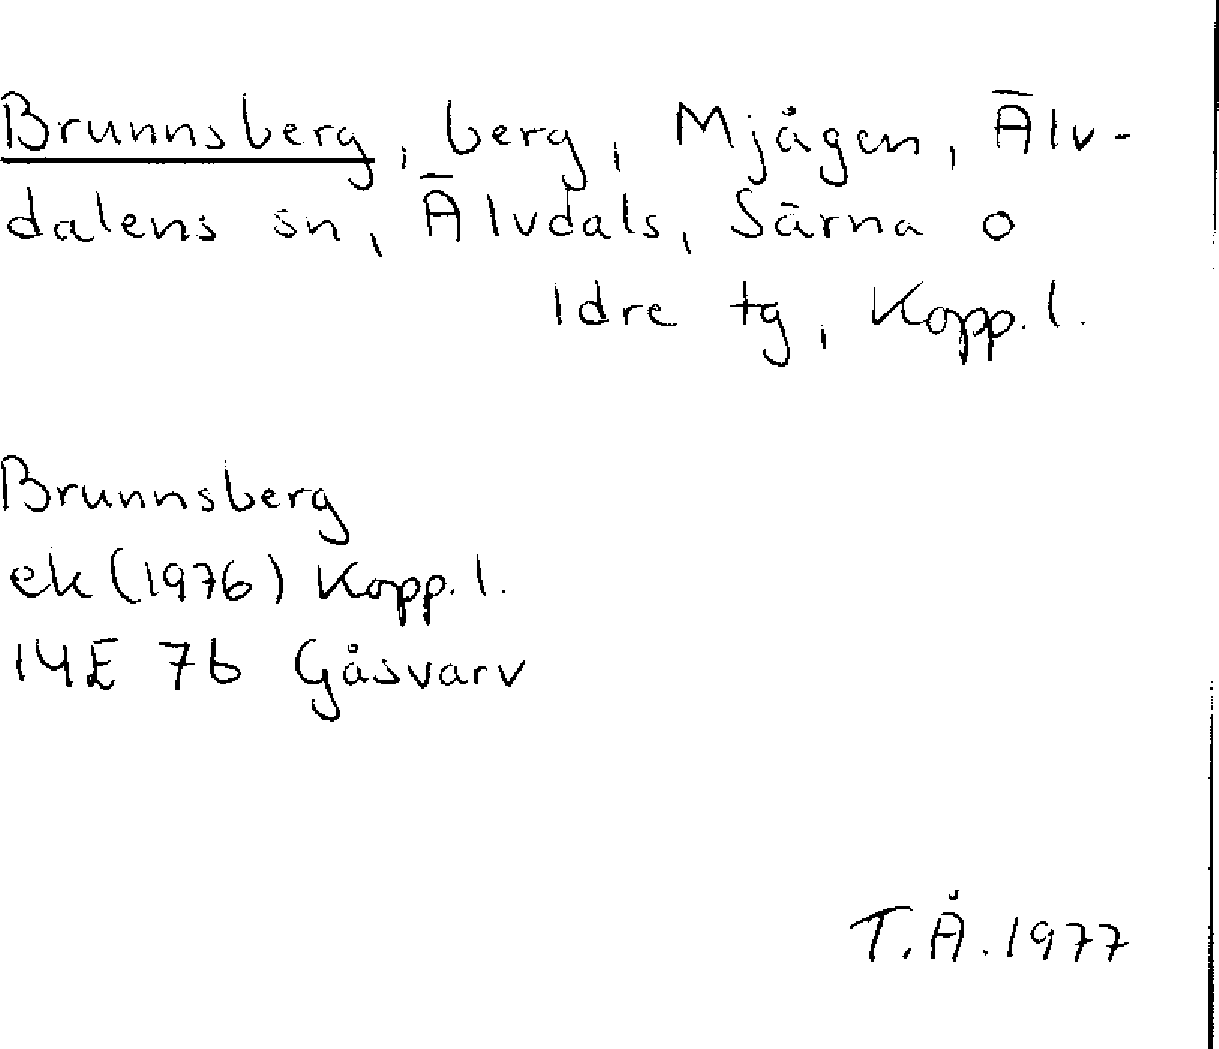 Brunnsberg, berg, Mjågen, Älv-
dalens sn, Älvdals, Särna o
Idre tg, Kopp. l.
Brunnsberg
ek (1976) Kopp. l.
14E 7b Gåsvarv
T.Å. 1977